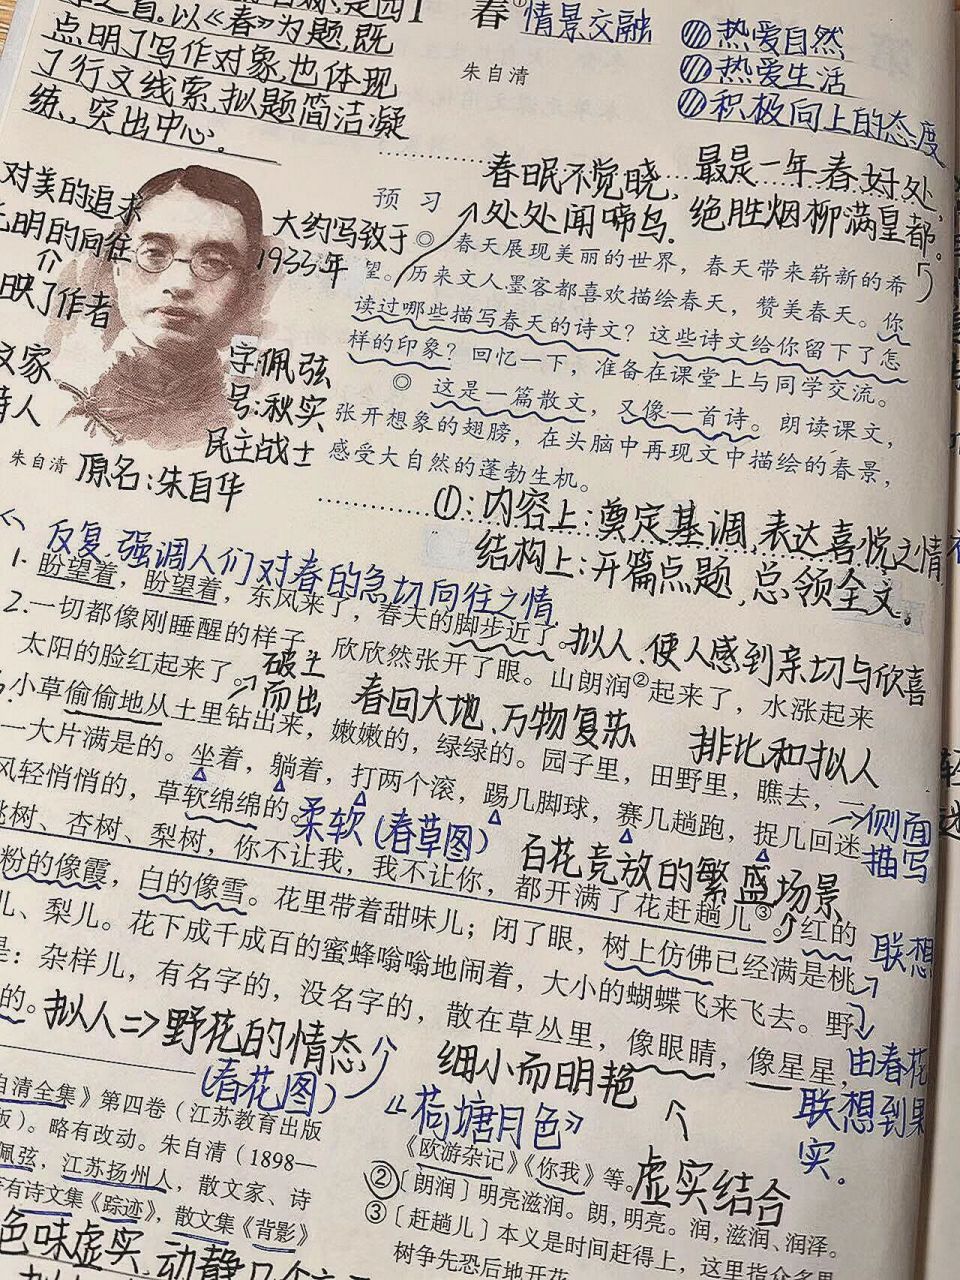 1 春① 情景交融
之首。以《春》为题,既
点明了写作对象,也体现
了行文线索,拟题简洁凝
练、突出中心.
热爱自然
热爱生活
积极向上的态度
朱自清
春眠不觉晓,
处处闻啼鸟.
最是一年春好处,
绝胜烟柳满皇都。
对美的追求
明的向往
映了作者
大约写致于
1933年
字:佩弦
号:秋实
民主战士
朱自清
原名:朱自华
预习
◎ 春天展现美丽的世界,春天带来崭新的希
望。历来文人墨客都喜欢描绘春天,赞美春天。你
读过哪些描写春天的诗文?这些诗文给你留下了怎
样的印象?回忆一下,准备在课堂上与同学交流。
◎ 这是一篇散文,又像一首诗。朗读课文,
张开想象的翅膀,在头脑中再现文中描绘的春景,
感受大自然的蓬勃生机。
①:内容上:奠定基调,表达喜悦之情
结构上:开篇点题,总领全文。
反复,强调人们对春的急切向往之情
1. 盼望着,盼望着,东风来了,春天的脚步近了。
拟人、使人感到亲切与欣喜
2. 一切都像刚睡醒的样子,欣欣然张开了眼。山朗润②起来了,水涨起来
太阳的脸红起来了。
破土
而出
春回大地、万物复苏
排比和拟人
小草偷偷地从土里钻出来,嫩嫩的,绿绿的。园子里,田野里,瞧去,一
一大片满是的。坐着,躺着,打两个滚,踢几脚球,赛几趟跑,捉几回迷
侧面
描写
风轻悄悄的,草软绵绵的。
柔软(春草图)
百花竞放的繁盛场景
桃树、杏树、梨树,你不让我,我不让你,都开满了花赶趟儿③。红的
粉的像霞,白的像雪。花里带着甜味儿;闭了眼,树上仿佛已经满是桃
联想
儿、梨儿。花下成千成百的蜜蜂嗡嗡地闹着,大小的蝴蝶飞来飞去。野
是:杂样儿,有名字的,没名字的,散在草丛里,像眼睛,像星星,
的。
拟人=>野花的情态
(春花图)
细小而明艳
由春花
联想到果
实.
《荷塘月色》
虚实结合
自清全集》第四卷(江苏教育出版
版)。略有改动。朱自清(1898—
佩弦,江苏扬州人,散文家、诗
有诗文集《踪迹》,散文集《背影》
《欧游杂记》《你我》等。
②〔朗润〕明亮滋润。朗,明亮。润,滋润、润泽。
③〔赶趟儿〕本义是时间赶得上,这里指众多果
树争先恐后地开花。
色味虚实,动静